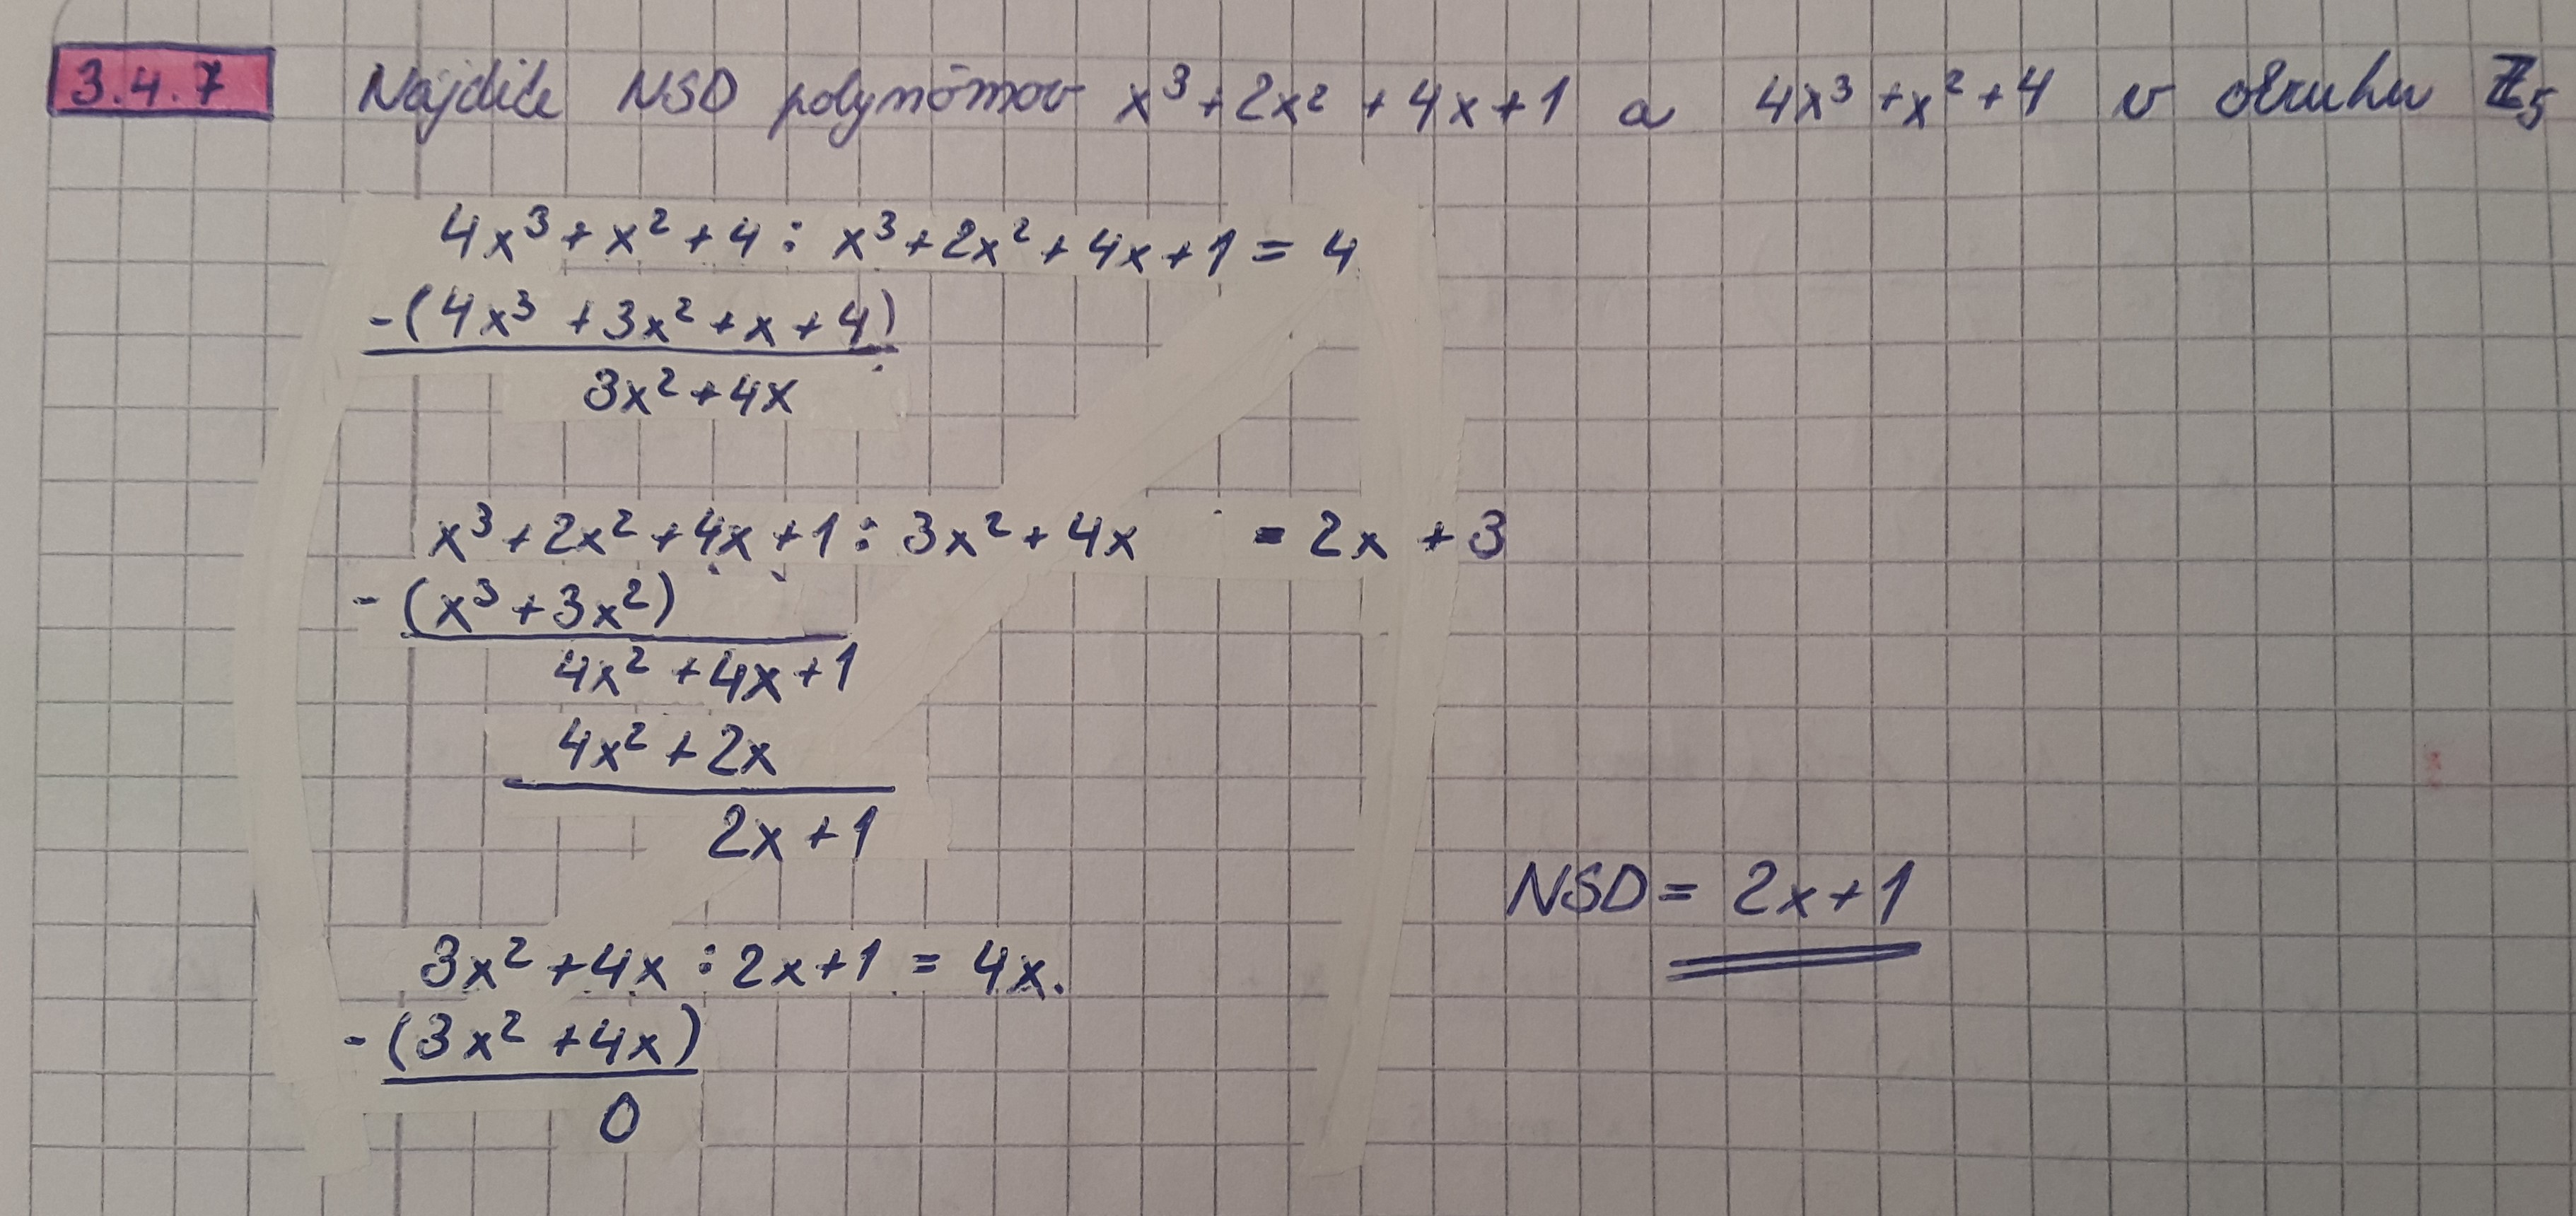 3.4.7 Nájdite NSD polynómov x³+2x²+4x+1 a 4x³+x²+4 v okruhu Z₅
4x³+x²+4 : x³+2x²+4x+1 = 4
-(4x³+3x²+x+4)
3x²+4x
x³+2x²+4x+1 : 3x²+4x = 2x+3
-(x³+3x²)
4x²+4x+1
4x²+2x
2x+1
NSD = 2x+1
3x²+4x : 2x+1 = 4x.
-(3x²+4x)
0